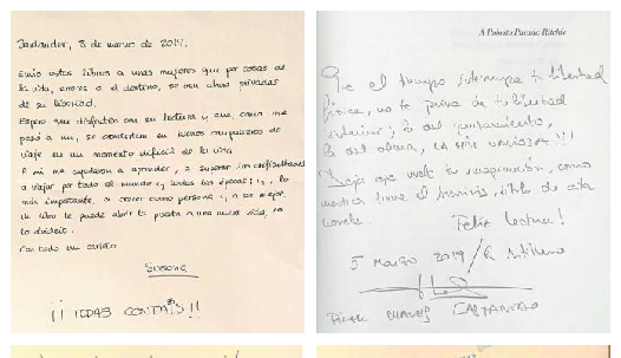 Santander, 3 de marzo de 2019.
Envío estos libros a unas mujeres que por cosas de
la vida, errores o el destino, se ven ahora privadas
de su libertad.
Espero que disfruten con su lectura y que, como me
pasó a mi, se conviertan en buenos compañeros de
viaje en un momento difícil de la vida.
A mi me ayudaron a aprender, a superar las dificultades
a viajar por todo el mundo y todas las épocas; y, lo
más importante, a crecer como persona y, a ser mejor.
Un libro te puede abrir la puerta a una nueva vida, no
lo olvidéis.
Con todo mi cariño
Susana
¡¡ TODAS CONTÁIS !!
A Roberto Pacuño Ritchie
Que el tiempo interrumpa tu libertad
física, no te priva de tu libertad
interior; la del pensamiento,
la del alma, la más valiosa!!!
Deja que vuele tu imaginación, como
título de esta
novela.
Feliz lectura!
5 Marzo 2019 /
CHAVES CASTANEDO